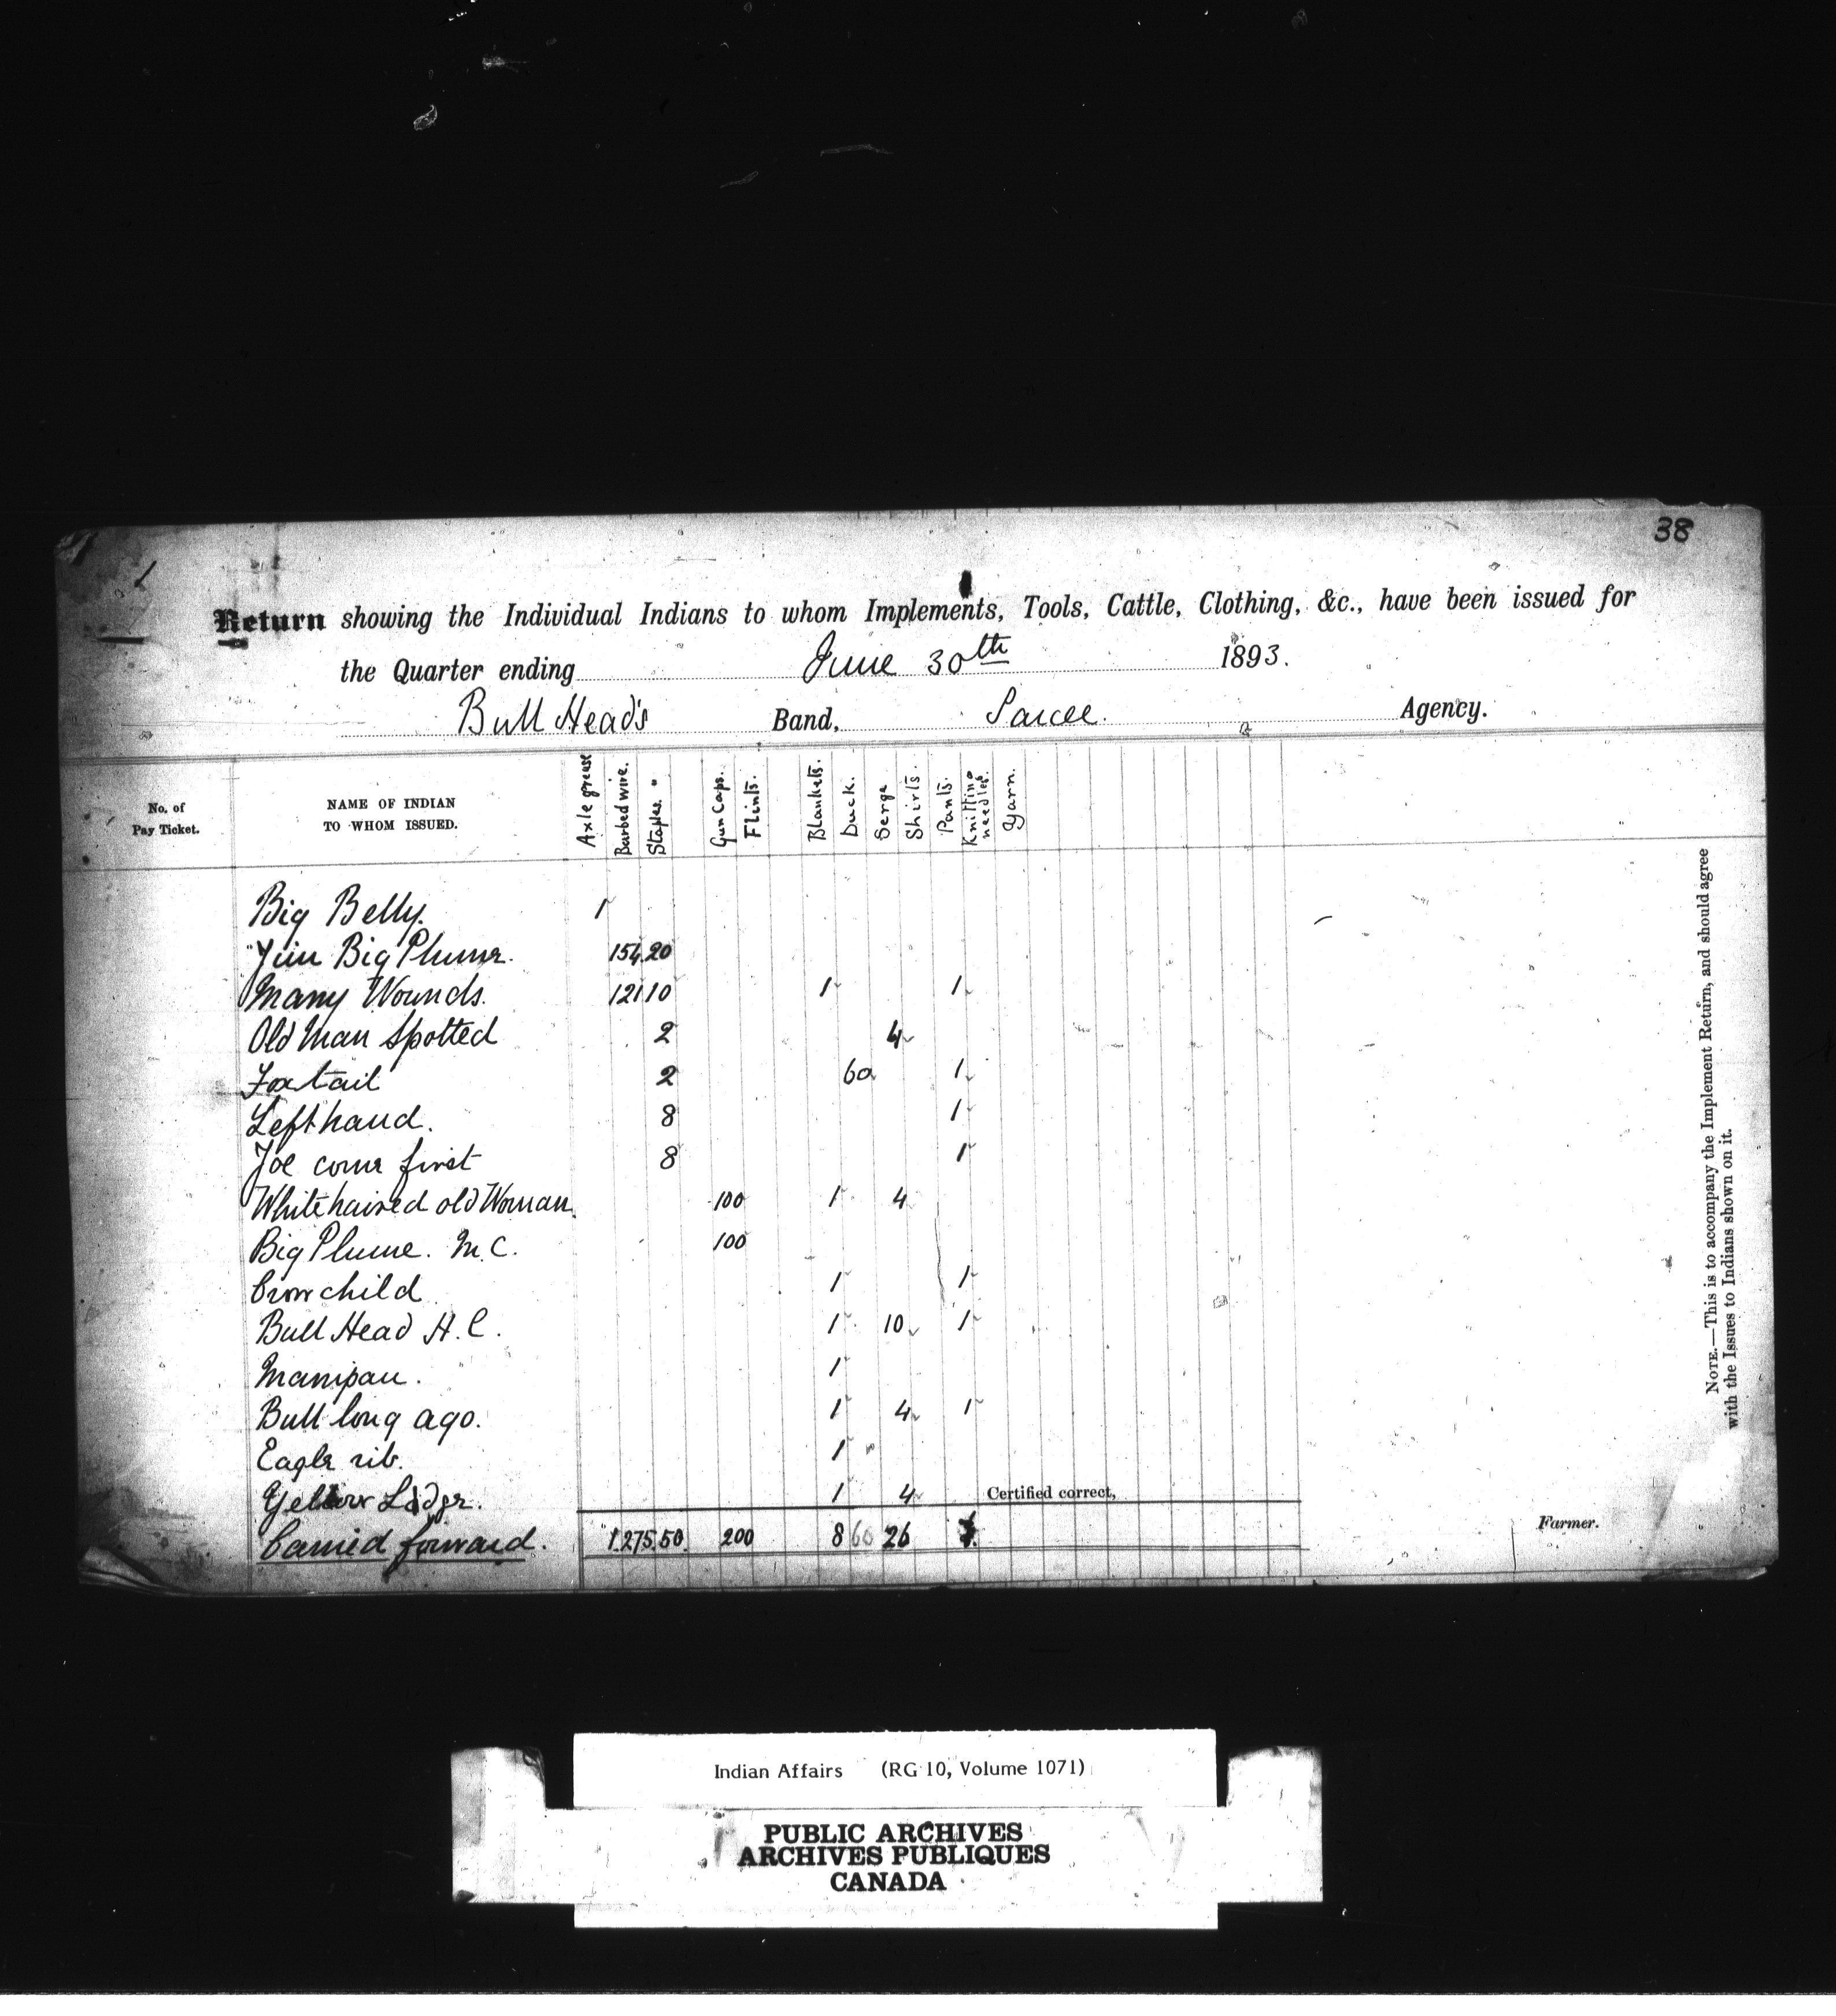 38
Return showing the Individual Indians to whom Implements, Tools, Cattle, Clothing, &c., have been issued for
the Quarter ending June 30th 1893.
Bull Head's Band, Sarcee. Agency.
No. of Pay Ticket. NAME OF INDIAN TO WHOM ISSUED. Axle grease Barbed wire. Staples " Gun Caps. Flints. Blankets. Duck. Serge Shirts. Pants. Knitting needles. Yarn.
Big Belly. 1
Jim Big Plume. 154 20
Many Wounds. 121 10 1 1
Old Man Spotted 2 4
Foxtail 2 60 1
Left hand. 8 1
Joe come first 8 1
White haired old Woman. 100 1 4
Big Plume. M.C. 100
Crow child 1 1
Bull Head H.C. 1 10 1
Manipau. 1
Bull long ago. 1 4 1
Eagle rib. 1
Yellow Lodge. 1 4
Certified correct,
Carried forward. 1 275 50 200 8 60 26 7
Farmer.
NOTE.—This is to accompany the Implement Return, and should agree
with the Issues to Indians shown on it.
Indian Affairs (RG 10, Volume 1071)
PUBLIC ARCHIVES
ARCHIVES PUBLIQUES
CANADA